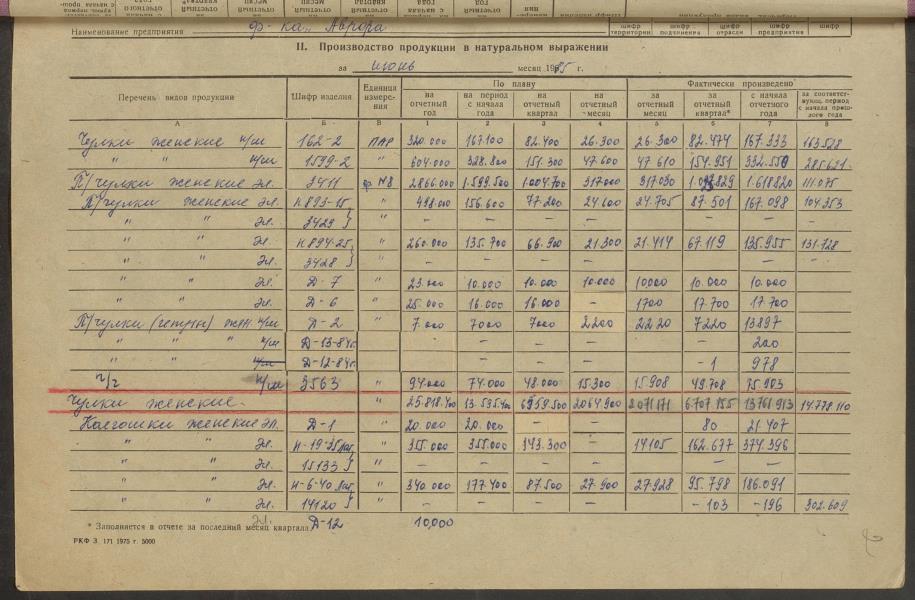 Наименование предприятия ф-ка Аврора
шифр территории шифр подчинения шифр отрасли шифр предприятия шифр
II. Производство продукции в натуральном выражении
за июнь месяц 1985 г.
Перечень видов продукции Шифр изделия Единица измерения По плану Фактически произведено за соответствующ. период с начала прошлого года
на отчетный год на период с начала года на отчетный квартал на отчетный месяц за отчетный месяц за отчетный квартал* с начала отчетного года
А Б В 1 2 3 4 5 6 7 8
Чулки женские х/ш 162-2 пар 320.000 167.100 82.400 26.300 26.300 82.474 167.333 163.528
" " н/ш 1599-2 " 604.000 328.800 151.300 47.600 47 610 151.951 332.550 285.621
П/чулки женские эл. 3411 2866.000 1.599.500 1.004.700 317.000 317.030 1.618820 111.075
П/чулки женские эл. н 893-15 " 498.000 156.600 77.200 24.600 24.705 87.501 167.098 104.353
" " эл. 3429 } " – – – – – – –
" " эл. н 894-25 " 260.000 135.700 66.900 21.300 21.414 67.119 135.955 131.728
" " эл. 3428 } – – – – – – –
" " эл. Д-7 " 23.000 10.000 10.000 10.000 10000 10.000 10.000
" " эл. Д-6 " 25.000 16.000 16.000 – 1700 17.700 17.700
П/чулки (гетры) жен. н/ш Д-2 " 7.000 7000 7000 2200 2220 7220 13897
" " " н/ш Д-13-84г. – – – – 200
н/ш Д-12-84г. – – – – 1 978
п/г н/ш 3563 " 94.000 74.000 48.000 15.300 15 908 49.708 75.903
Чулки женские. " 25.818.400 13.595.400 6959.500 2064.900 2071171 6.707 155 13761 913 14.778.110
Колготки женские эл. Д-1 " 20.000 20.000 – – 80 21.407
" " эл. 355.000 355.000 143.300 – 14105 162.677 374.396
" " " 15133 } " – – – – – –
" " эл. " 340.000 177.400 87.500 27.900 27.928 95.798 186.091
" " эл. 14120 } – – – – – 103 – 196 302.609
* Заполняется в отчете за последний месяц квартала
эл. Д-12 10,000
РКФ З. 171 1975 г. 5000